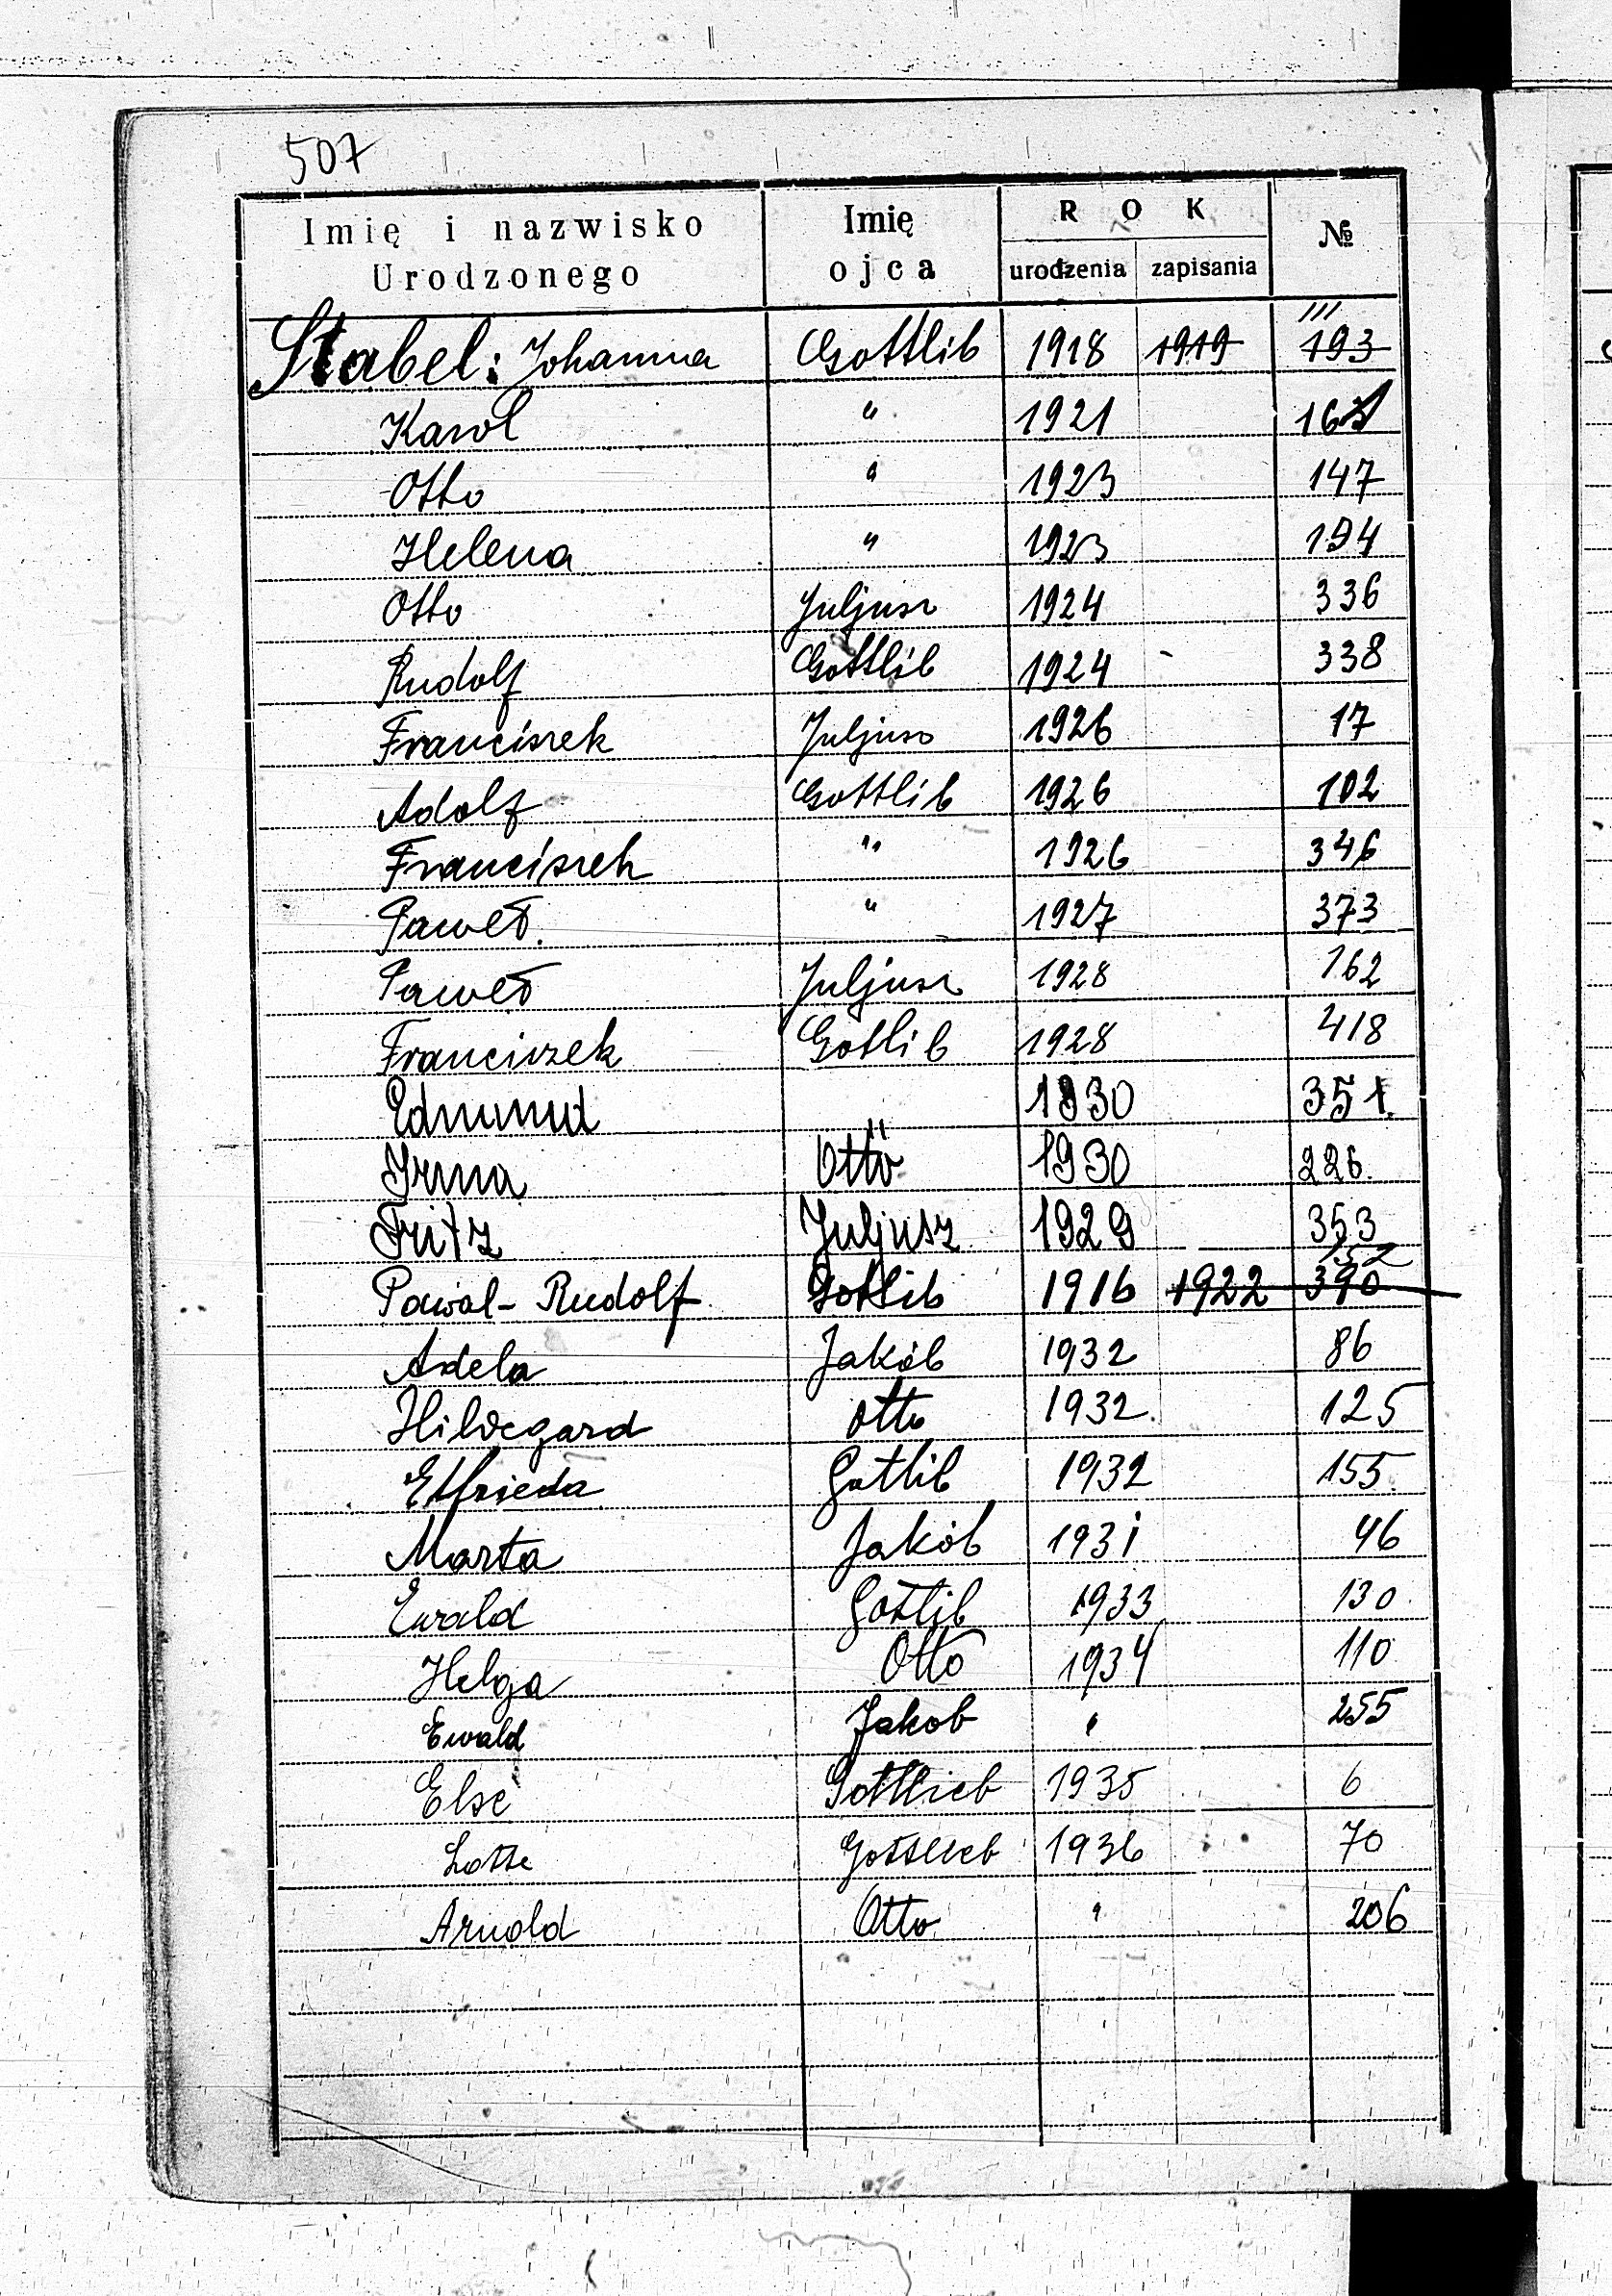 507
Imię i nazwisko Urodzonego Imię ojca ROK urodzenia zapisania №
Stabel: Johanna Gottlib 1918 1919 111 193
Karol " 1921
Otto " 1923 147
Helena " 1923 194
Otto Juljusz 1924 336
Rudolf Gottlib 1924 - 338
Franciszek Juljusz 1926 17
Adolf Gottlib 1926 102
Franciszek " 1926 346
Paweł. " 1927 373
Paweł Juljusz 1928 162
Franciszek Gotlib 1928 418
Edmund " 1930 351.
Irma Otto 1930 226.
Fritz Juljusz 1929 353
Pawal-Rudolf Gotlib 1916 1922 152 390
Adela Jakób 1932 86
Hildegard Otto 1932. 125
Elfrieda Gotlib 1932 155.
Marta Jakób 1931 46
Ewald Gotlib 1933 130.
Helga Otto 1934 110
Ewald Jakob " 255
Else Gottlieb 1935 6
Lotte Gottlieb 1936 70
Arnold Otto " 206